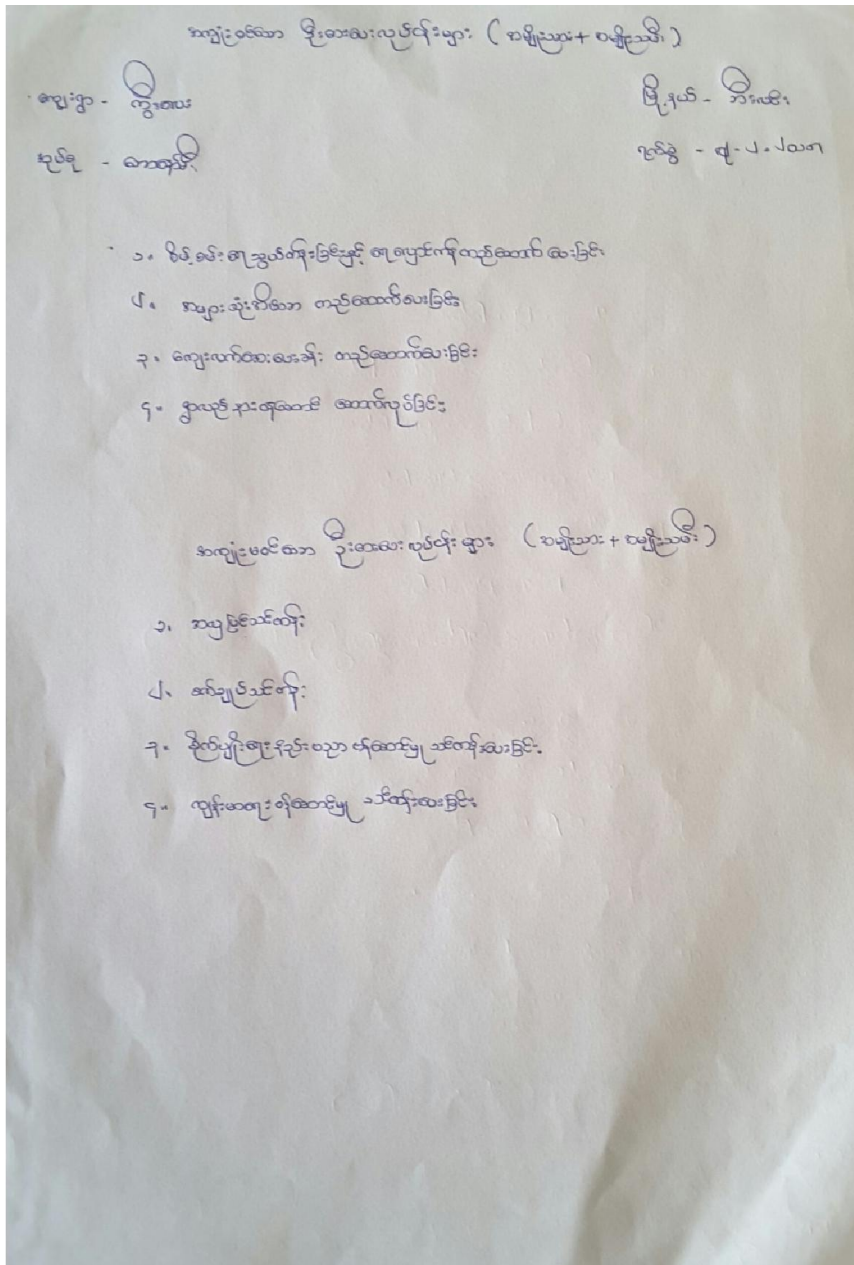 အကျုံးဝင်သော ဦးစားပေးလုပ်ငန်းများ (အမျိုးသား + အမျိုးသမီး)
ကျေးရွာ - ကွီးလေး
မြို့နယ် - ဘီးလင်း
အုပ်စု -
ရက်စွဲ - ၅-၂-၂၀၁၈
၁။ စိမ့်စမ်းရေသွယ်တန်းခြင်းနှင့် ရေလှောင်ကန်တည်ဆောက်ပေးခြင်း
၂။ အများသုံးအိမ်သာ တည်ဆောက်ပေးခြင်း
၃။ ကျေးလက်ဆေးပေးခန်း တည်ဆောက်ပေးခြင်း
၄။ ရွာလည် နားနေဆောင် ဆောက်လုပ်ခြင်း
အကျုံးမဝင်သော ဦးစားပေးလုပ်ငန်းများ (အမျိုးသား + အမျိုးသမီး)
၁။ အလှပြင်သင်တန်း
၂။ စက်ချုပ်သင်တန်း
၃။ စိုက်ပျိုးရေးနည်းပညာ ဝန်ဆောင်မှု သင်တန်းပေးခြင်း
၄။ ကျန်းမာရေးဝန်ဆောင်မှု သင်တန်းပေးခြင်း